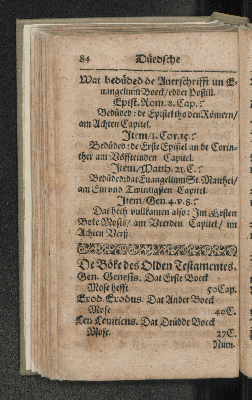 84 Düedsche
Wat bedüded de Averschrifft im E-
vangelium Boeck/edder Postill.
Epist. Rom. 8. Cap.
Bedüded: de Epistel tho den Römern/
am Achten Capitel.
Item/1. Cor. 15.
Bedüded: de Erste Epistel an de Corin-
ther am Vöfftteinden Capitel.
Item/Matth. 21. C.
Bedüded: dat Euangelium St. Matthei/
am Ein vnd Twintigsten Capitel.
Item/Gen. 4. v. 8.
Dat heth vullkamen also: Im Ersten
Boke Mosis/ am Veerden Capitel/ im
Achten Verß.
De Böke des Olden Testamentes.
Gen. Genesis. Dat Erste Boeck
Mose hefft 50 Cap.
Exod. Exodus. Dat Ander Boeck
Mose 40 C.
Lev. Leviticus. Dat Drüdde Boeck
Mose. 27 C.
Num.